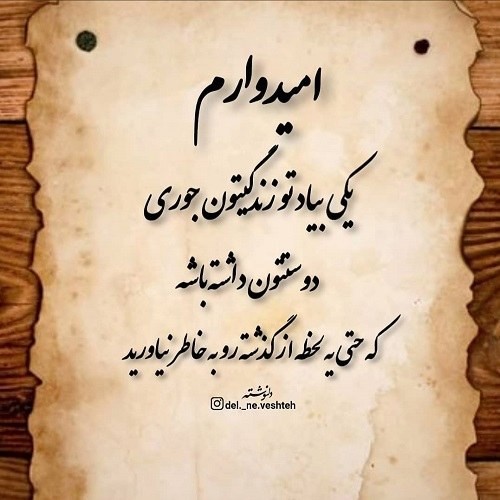 امیدوارم
یکی بیاد تو زندگیتون جوری
دوستتون داشته باشه
که حتی یه لحظه از گذشته رو به خاطر نیاورید
دلنوشته
del._ne.veshteh